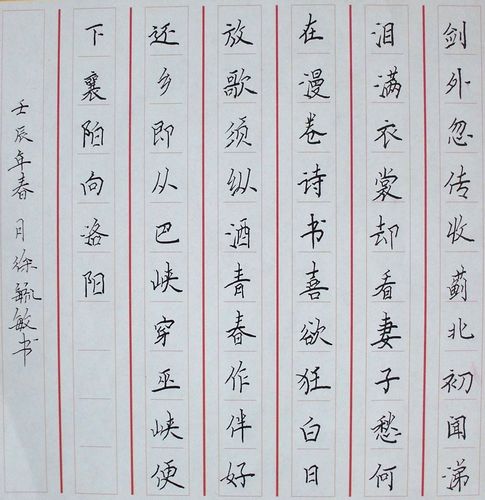 剑外忽传收蓟北初闻涕
泪满衣裳却看妻子愁何
在漫卷诗书喜欲狂白日
放歌须纵酒青春作伴好
还乡即从巴峡穿巫峡便
下襄陌向洛阳
壬辰年春月徐毓敏书